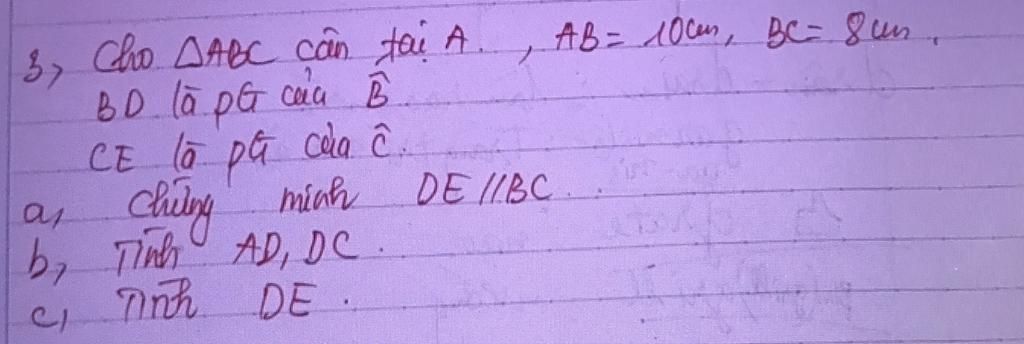 3, Cho ΔABC cân tại A., AB = 10cm, BC = 8cm.
BD là pG của B̂
CE là pG của Ĉ.
a, Chứng minh DE // BC.
b, Tính AD, DC.
c, Tính DE.